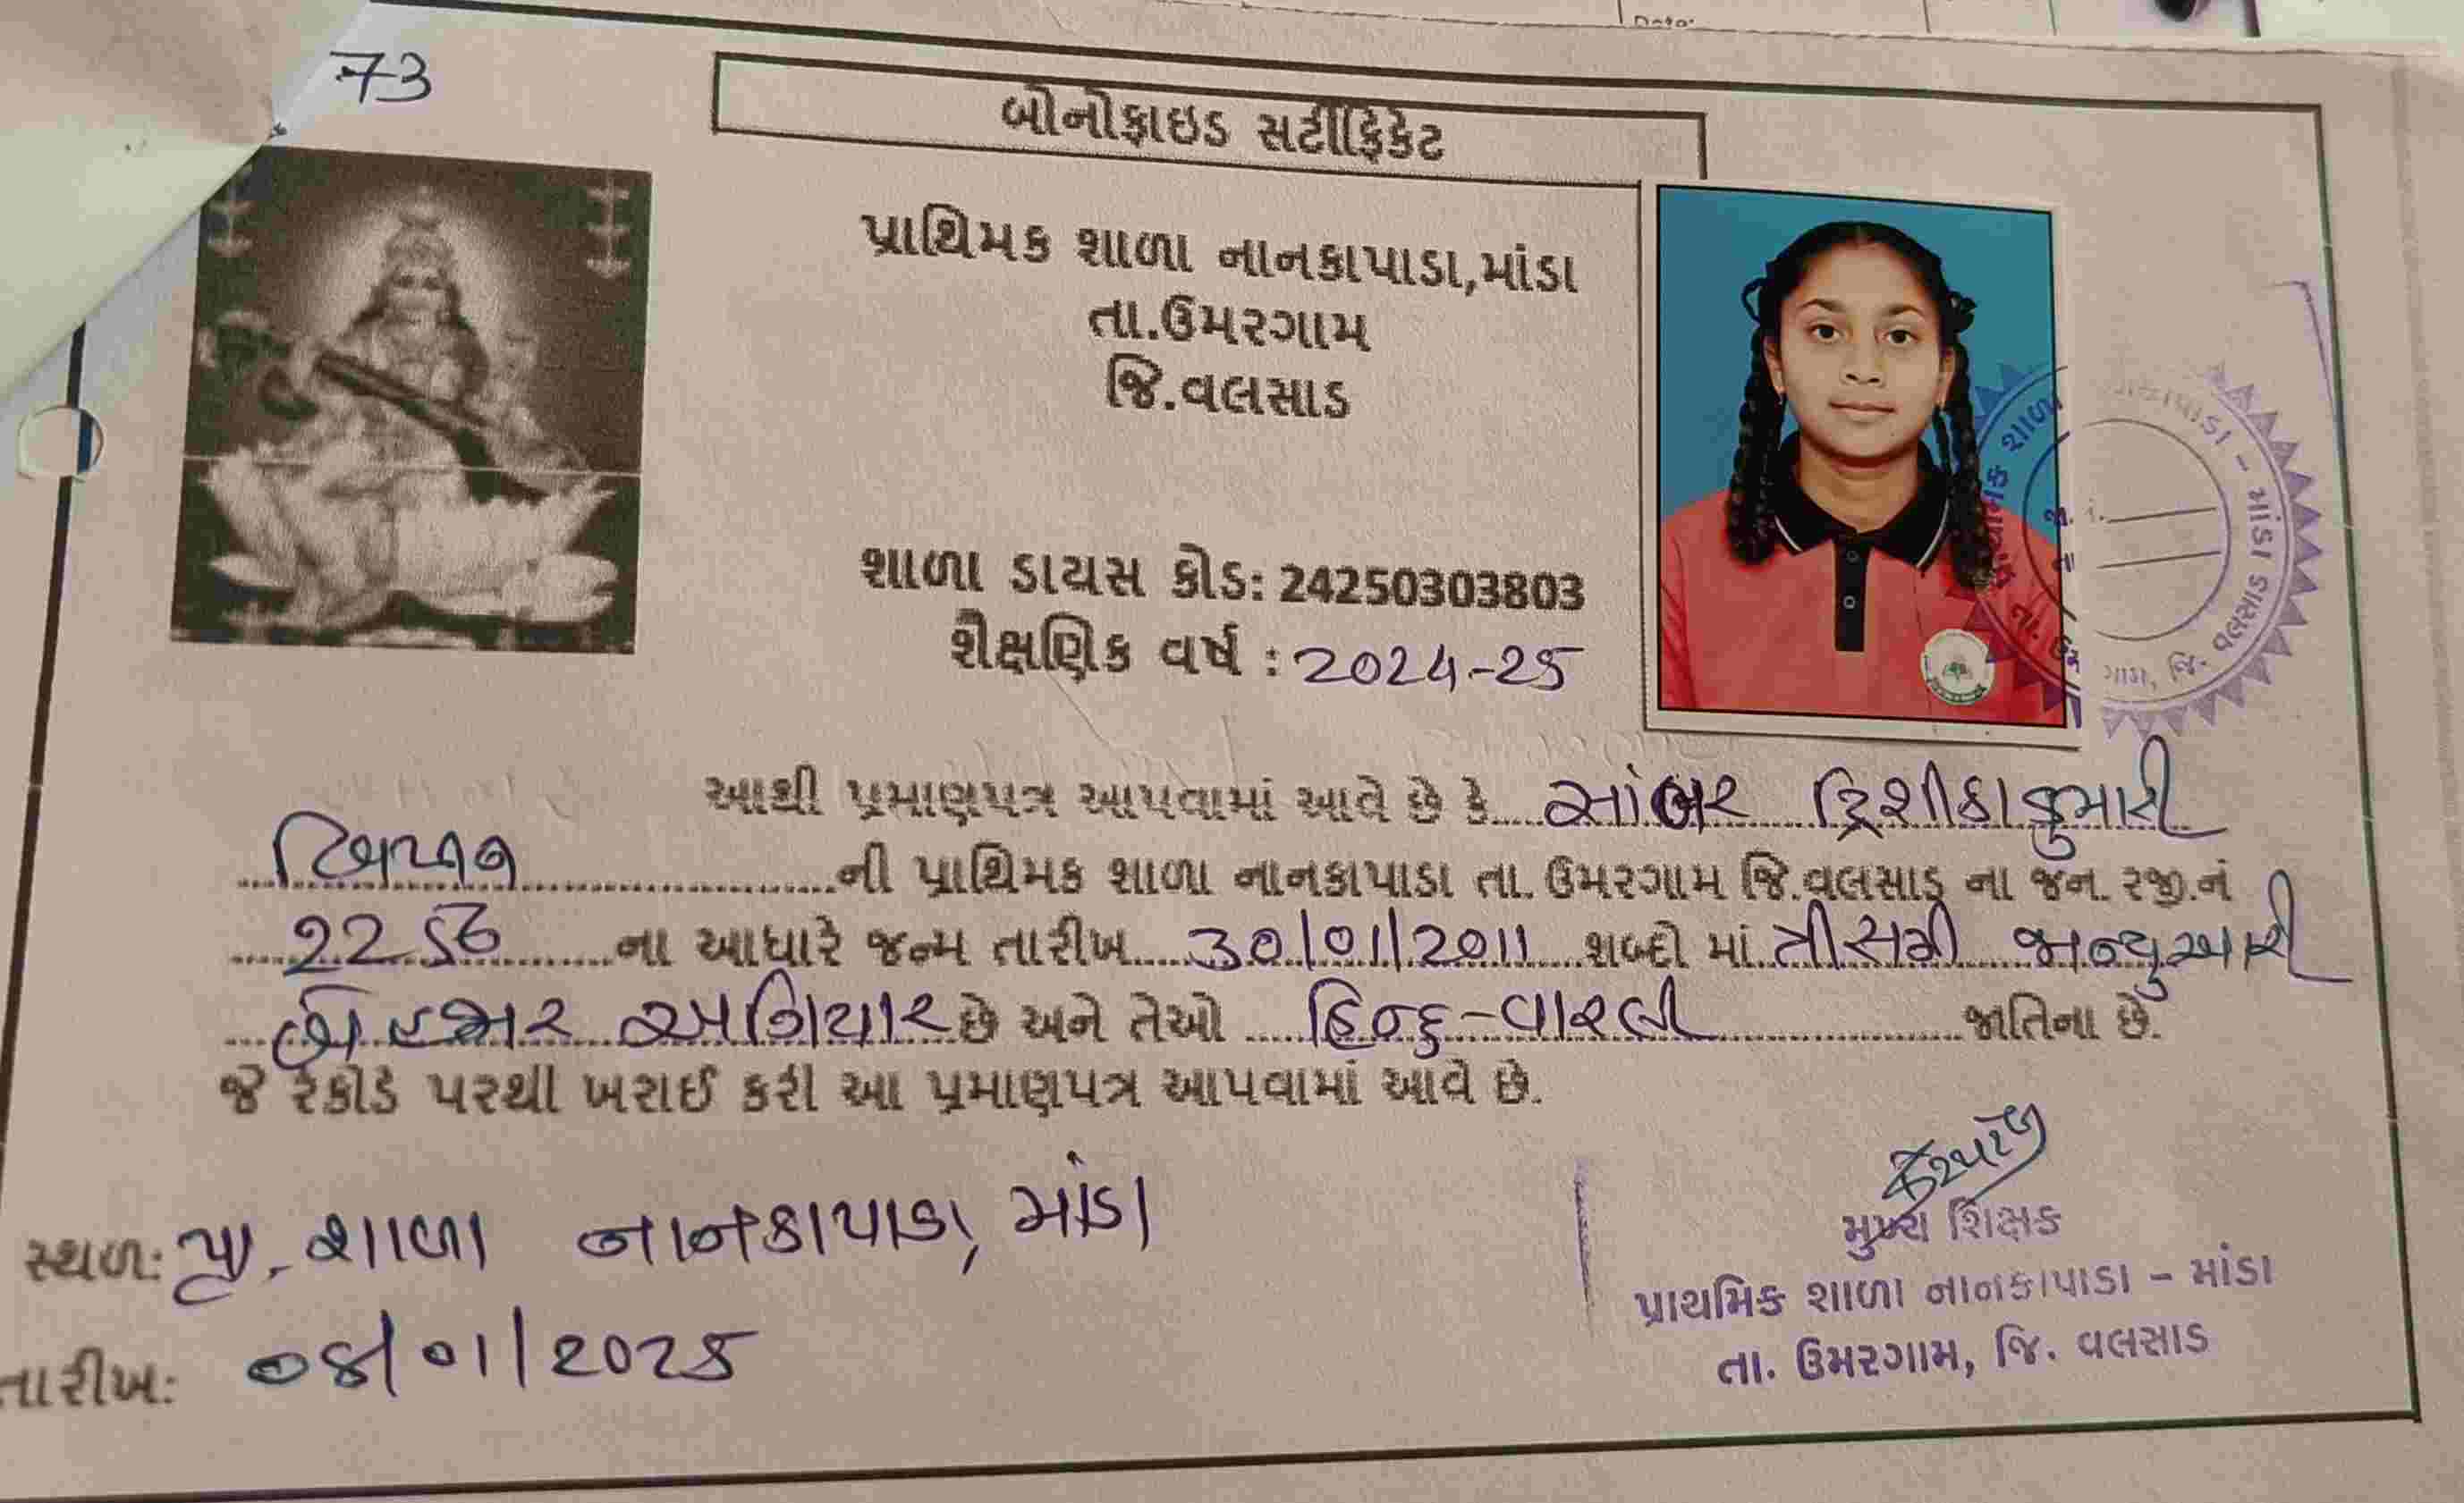 73
બોનોફાઇડ સર્ટીફિકેટ
પ્રાથિમક શાળા નાનકાપાડા,માંડા
તા.ઉમરગામ
જિ.વલસાડ
શાળા ડાયસ કોડ: 24250303803
શૈક્ષણિક વર્ષ : 2024-25
આથી પ્રમાણપત્ર આપવામાં આવે છે કે સાંબર ક્રિશીકાકુમારી
બિપીન ની પ્રાથિમક શાળા નાનકાપાડા તા. ઉમરગામ જિ.વલસાડ ના જન. રજી.નં
ના આધારે જન્મ તારીખ 30/01/2011 શબ્દો માં ત્રીસમી જાન્યુઆરી
બે હજાર અગિયાર છે અને તેઓ હિન્દુ-વારલી જાતિના છે.
જે રેકોર્ડ પરથી ખરાઈ કરી આ પ્રમાણપત્ર આપવામાં આવે છે.
સ્થળ: પ્રા. શાળા નાનકાપાડા, માંડા
તારીખ:
મુખ્ય શિક્ષક
પ્રાથમિક શાળા નાનકાપાડા - માંડા
તા. ઉમરગામ, જિ. વલસાડ